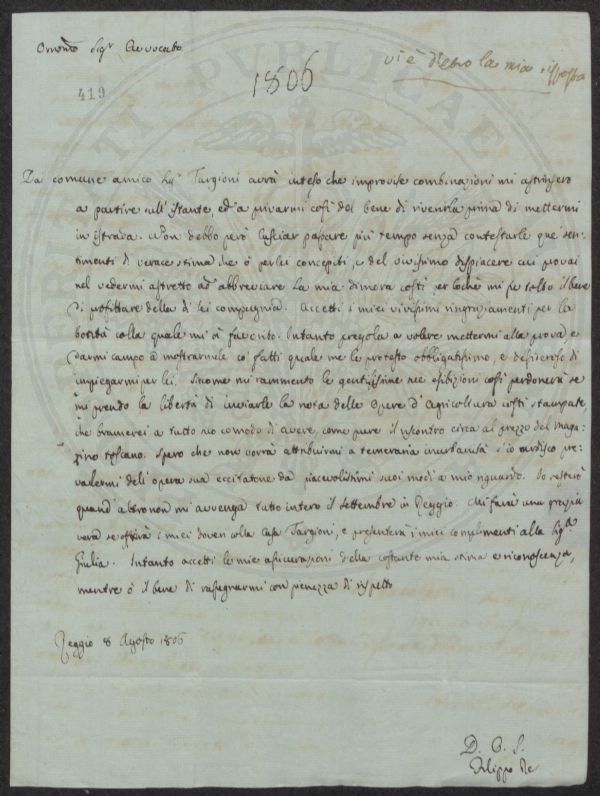 Ornatmo Sigr Avvocato
vi è dietro la mia risposta
1806
419
Dal comune amico Sigr Targioni avrà inteso che improvise combinazioni mi astrinsero
a partire sull' istante, ed a privarmi così del bene di riverirla prima di mettermi
in istrada. Non debbo però lasciar passare più tempo senza contestarle que' sen-
timenti di verace stima che ò per lei concepiti, e del vivissimo dispiacere cui provai
nel vedermi astretto ad abbreviare la mia dimora costì per lochè mi fu tolto il bene
di profittare della di lei compagnia. Accetti i miei vivissimi ringraziamenti per la
bontà colla quale mi à favorito. Intanto pregola a volere mettermi alla prova e
darmi campo a mostrarmele co' fatti quale me le protesto obbligatissimo, e desideroso di
impiegarmi per lei. Siccome mi rammento le gentilissime sue esibizioni così perdonerà se
mi prendo la libertà di inviarle la nota delle Opere d'Agricoltura costì stampate
che bramerei a tutto suo comodo di avere, come pure il riscontro circa al prezzo del Maga-
zino toscano. Spero che non vorrà attribuirmi a temeraria inurbanità s'io ardisco pre-
valermi dell' opera sua eccitatone da piacevolissimi suoi modi a mio riguardo. Io resterò
quand' altro non mi avvenga tutto intero il settembre in Reggio. Mi farà una grazia
vera se offrirà i miei doveri alla Casa Targioni, e presenterà i miei complimenti alla Sigra
Giulia. Intanto accetti le mie assicurazioni della costante mia stima e riconoscenza,
mentre ò il bene di rassegnarmi con pienezza di rispetto
Reggio 8 Agosto 1806
D. V. S.
Filippo Re